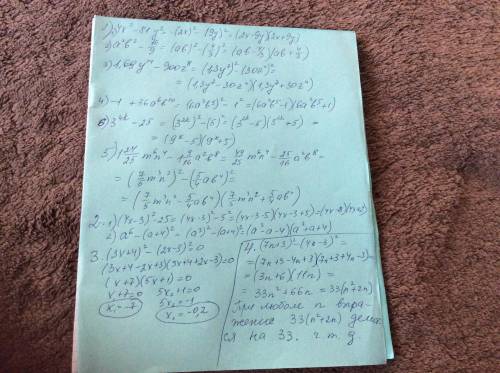 1) 4x² - 81y² = (2x)² - (9y)² = (2x-9y)(2x+9y)
2) a²b² - 16/9 = (ab)² - (4/3)² = (ab - 4/3)(ab + 4/3)
3) 1,69y¹⁴ - 900z⁸ = (1,3y⁷)² - (30z⁴)² =
= (1,3y⁷ - 30z⁴)(1,3y⁷ + 30z⁴)
4) -1 + 36a⁶b¹⁰ = (6a³b⁵)² - 1² = (6a³b⁵-1)(6a³b⁵+1)
6) 3⁴ᵏ - 25 = (3²ᵏ)² - (5)² = (3²ᵏ - 5)(3²ᵏ + 5) =
= (9ᵏ - 5)(9ᵏ + 5)
5) 1 24/25 m⁶n⁴ - 1 9/16 a²b⁸ = 49/25 m⁶n⁴ - 25/16 a²b⁸ =
= (7/5 m³n²)² - (5/4 ab⁴)² =
= (7/5 m³n² - 5/4 ab⁴)(7/5 m³n² + 5/4 ab⁴)
2. 1) (4x-3)² - 25 = (4x-3)² - 5² = (4x-3-5)(4x-3+5) = (4x-8)(4x+2)
2) a⁶ - (a+4)² = (a³)² - (a+4)² = (a³-a-4)(a³+a+4)
3. (3x+4)² - (2x-3)² = 0
(3x+4-2x+3)(3x+4+2x-3) = 0
(x+7)(5x+1) = 0
x+7=0 5x₂+1=0
x₁=-7 5x₂=-1
x₂=-0,2
4. (7n+3)² - (4n-3)² =
= (7n+3-4n+3)(7n+3+4n-3) =
= (3n+6)(11n) =
= 33n² + 66n = 33(n²+2n)
При любом n выра-
жение 33(n²+2n) делит-
ся на 33. ч.т.д.